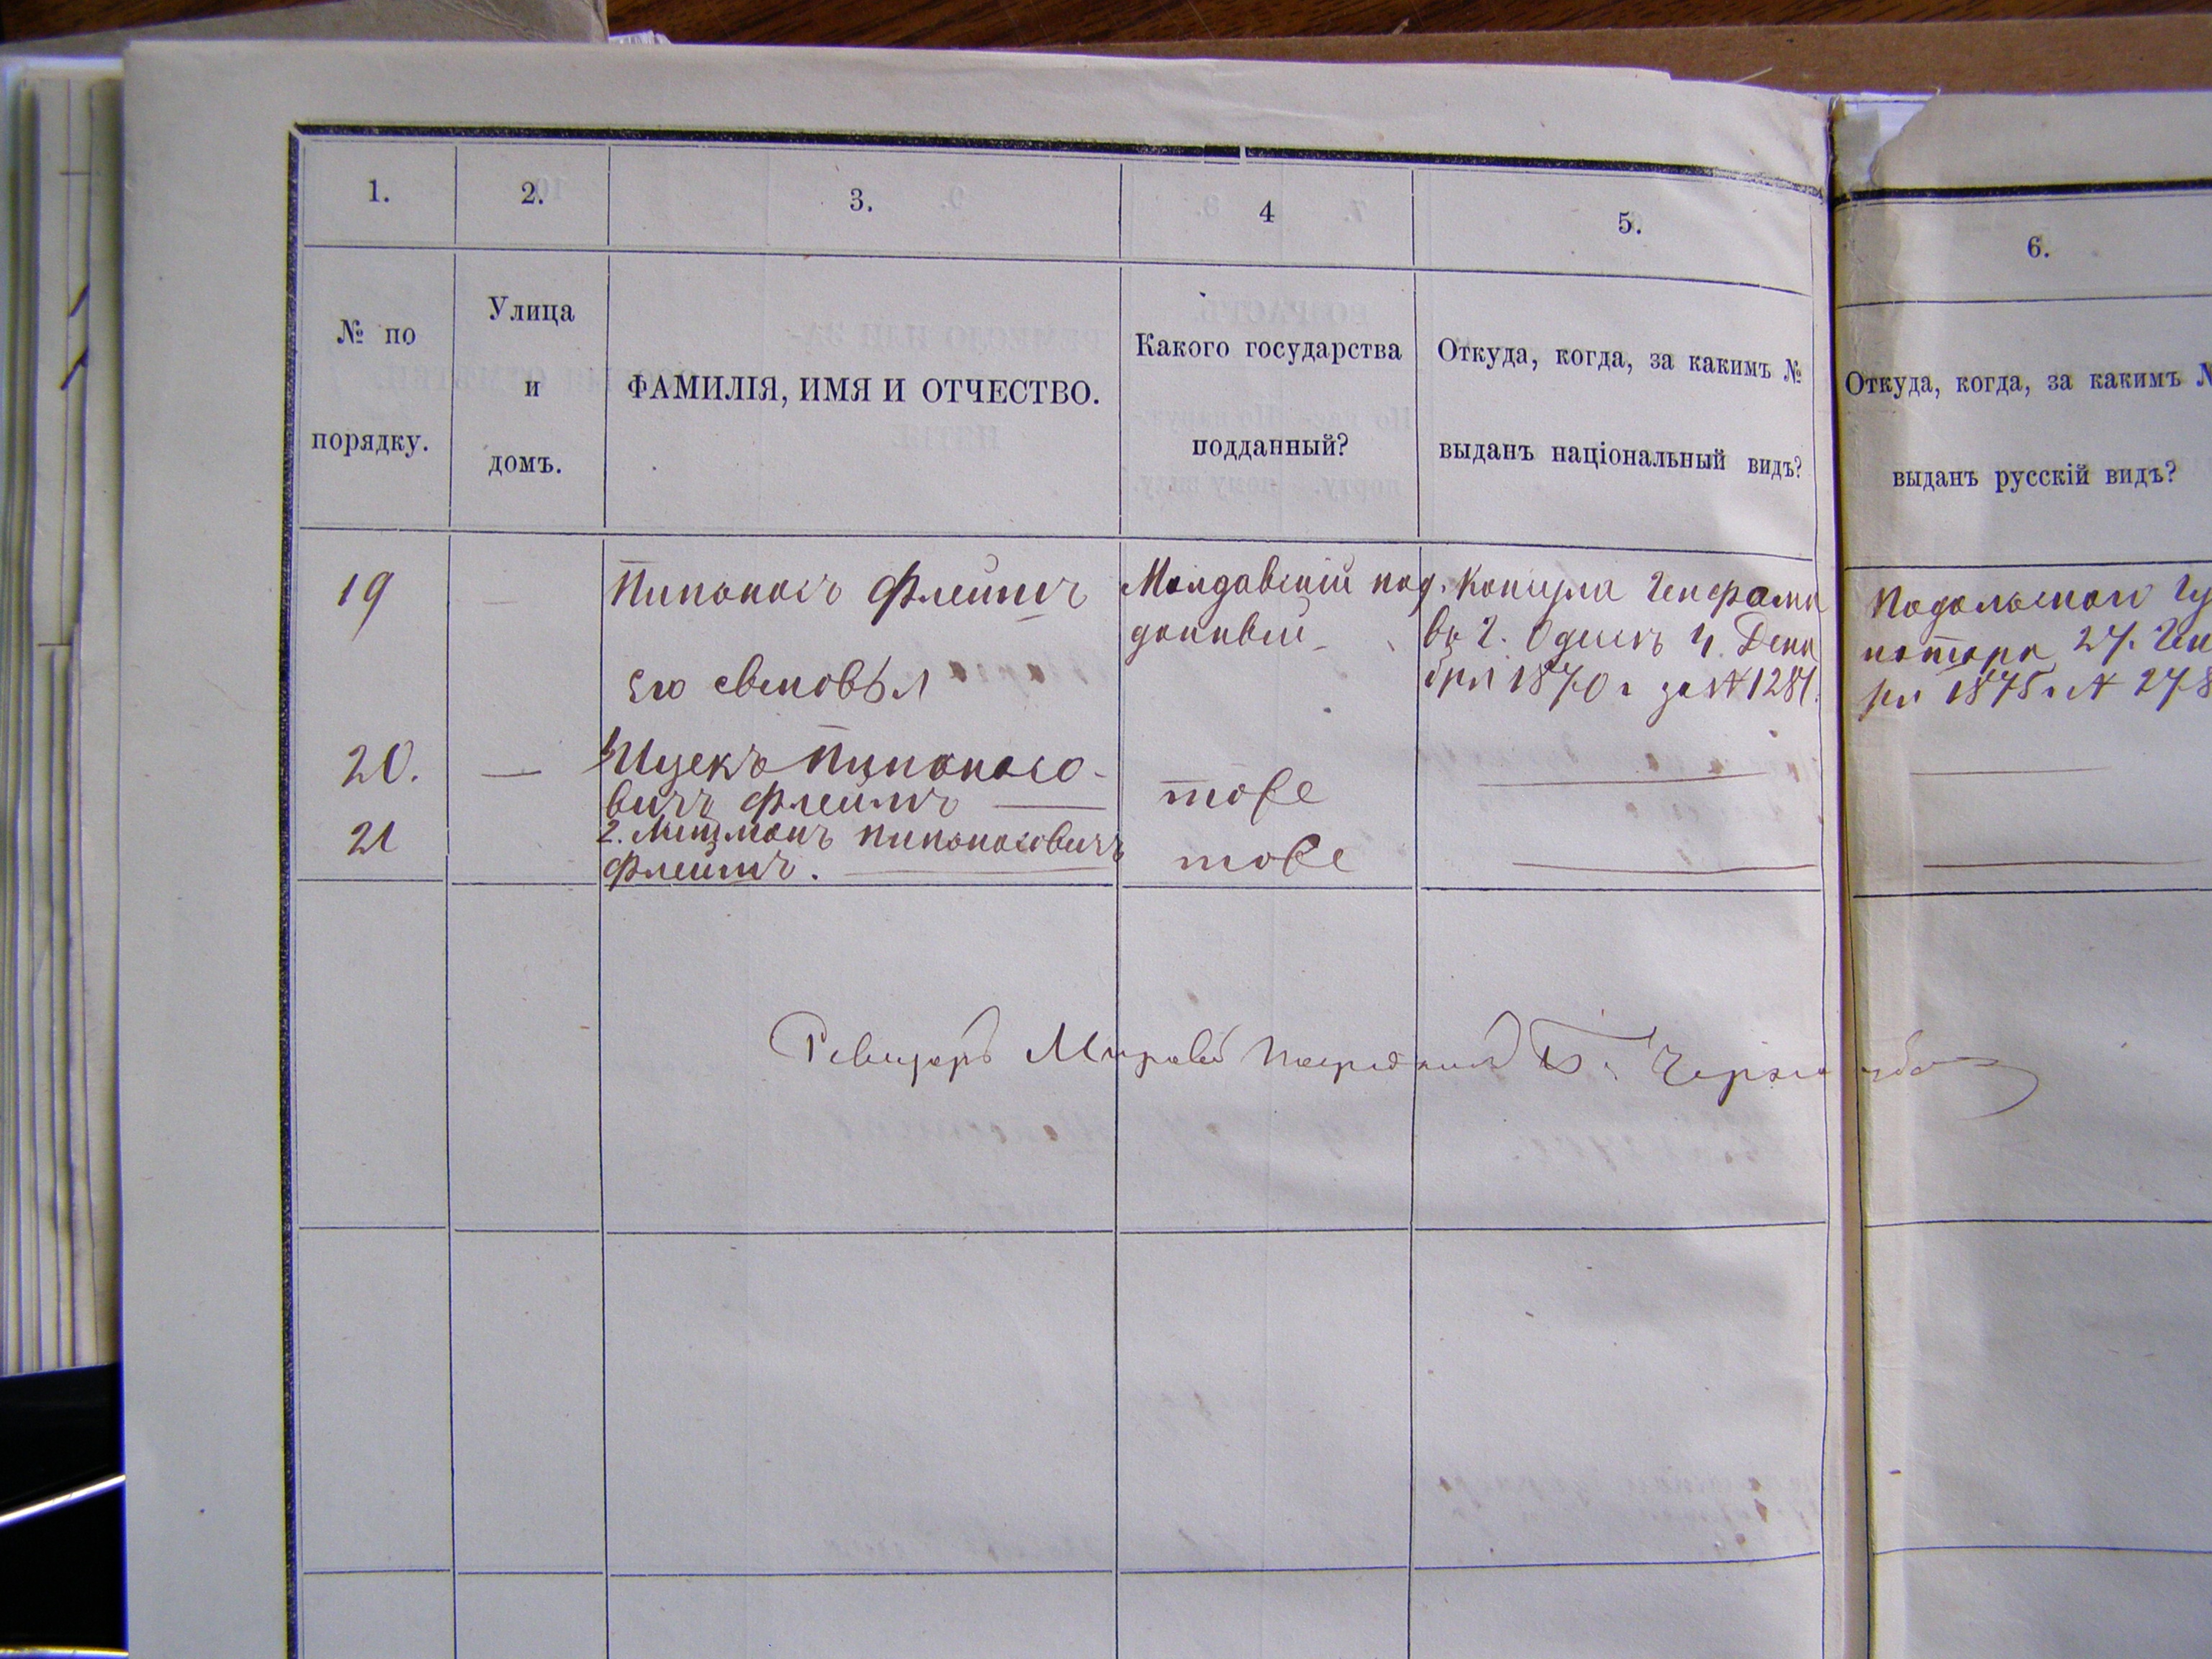 1.
2.
3.
4
5.
6.
№ по
порядку.
Улица
и
домъ.
ФАМИЛІЯ, ИМЯ И ОТЧЕСТВО.
Какого государства
подданный?
Откуда, когда, за какимъ №
выданъ національный видъ?
Откуда, когда, за какимъ №
выданъ русскій видъ?
19
—
Пинкасъ
его сыновья
Молдавскій под
данный
Консула
въ г. Одессѣ 4. Дека
бря 1870 г за № 1281.
Подольскаго Гу
натора 27.
ря 1875 г № 278
20.
—
Ицекъ Пинкасо-
вичъ
тоже
21
2. Пинкасовичъ
тоже
Ревизоръ Мировой Посредникъ